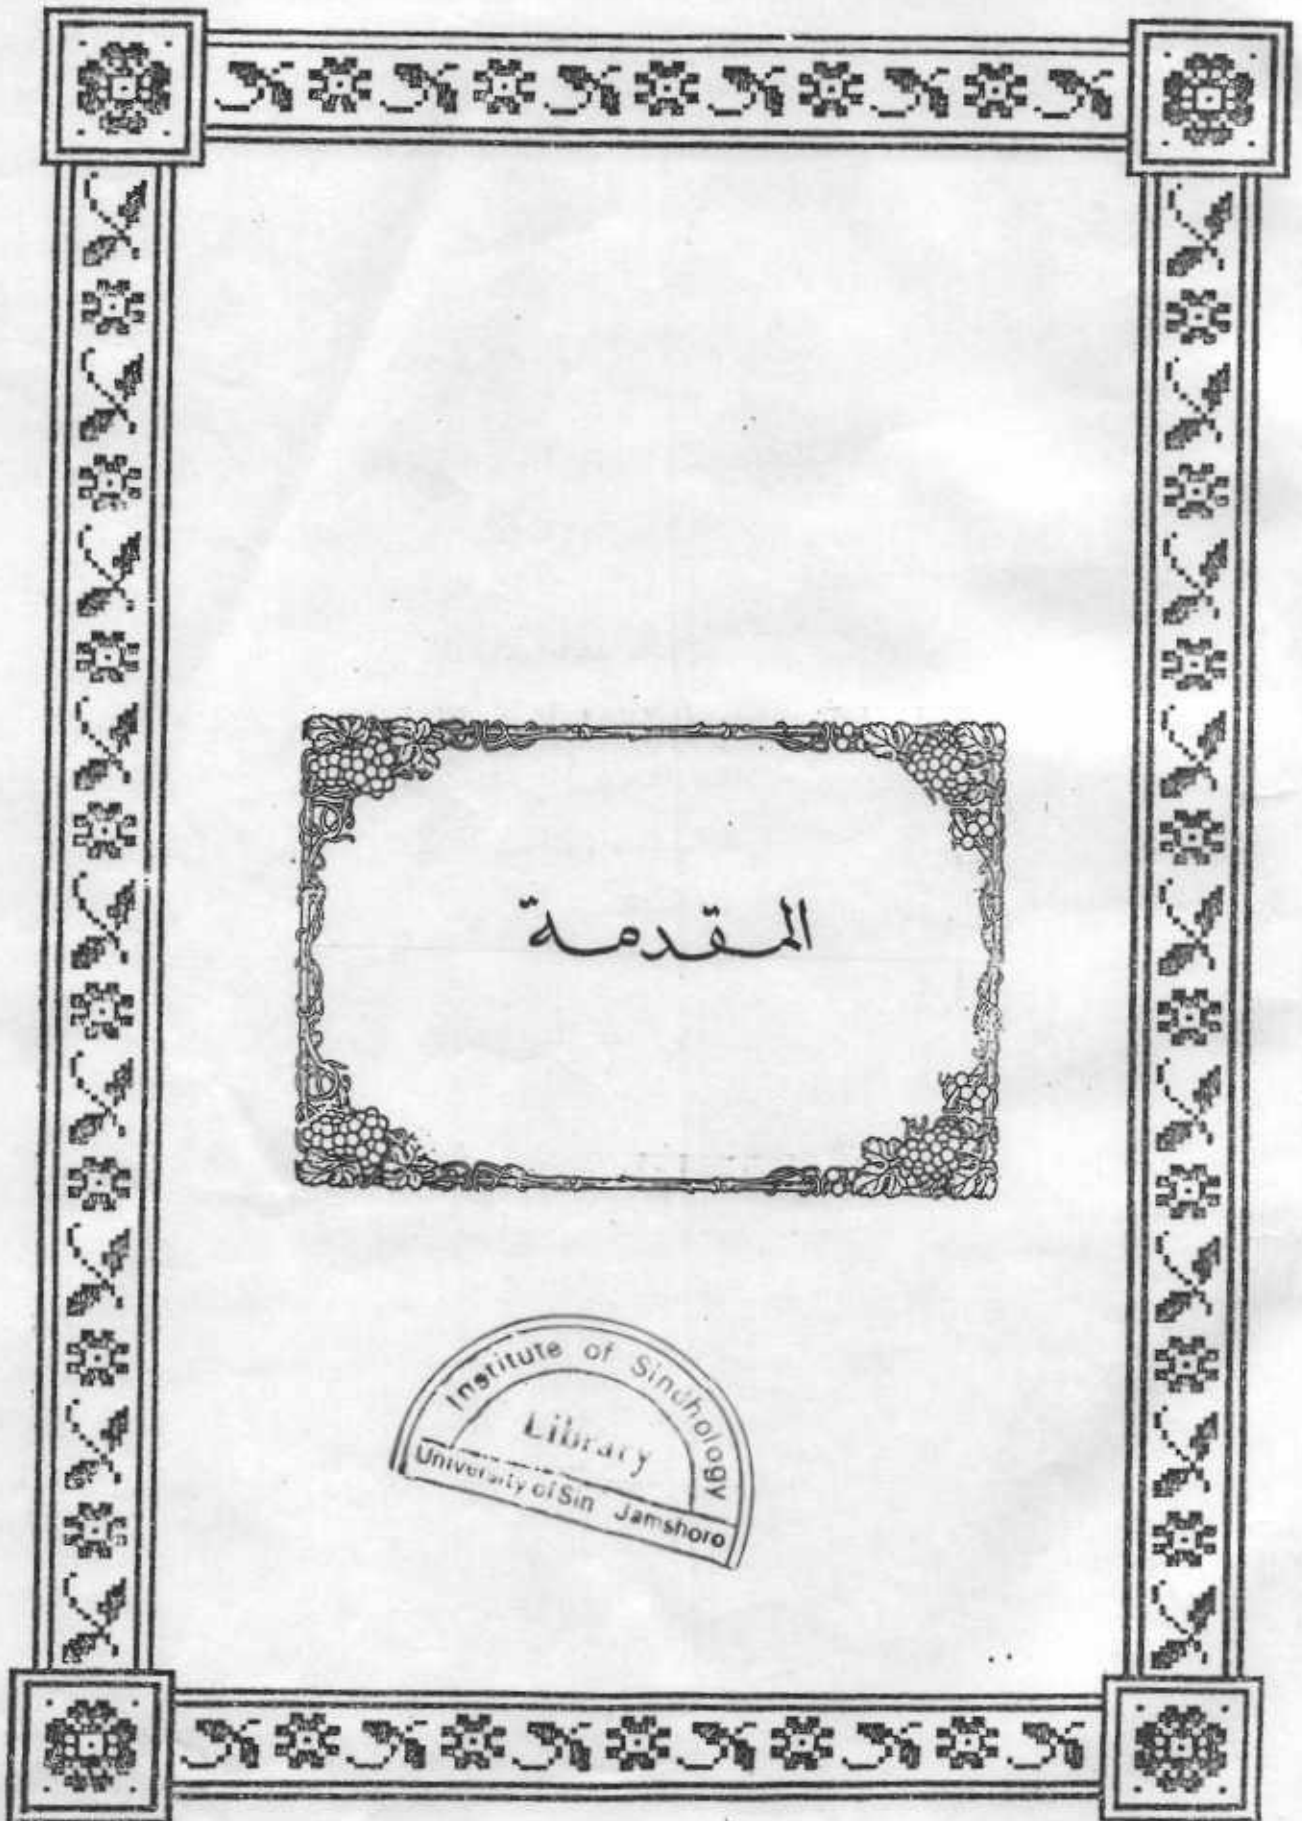 المقدمة
Institute of Sindhology
Library
University of Sin Jamshoro